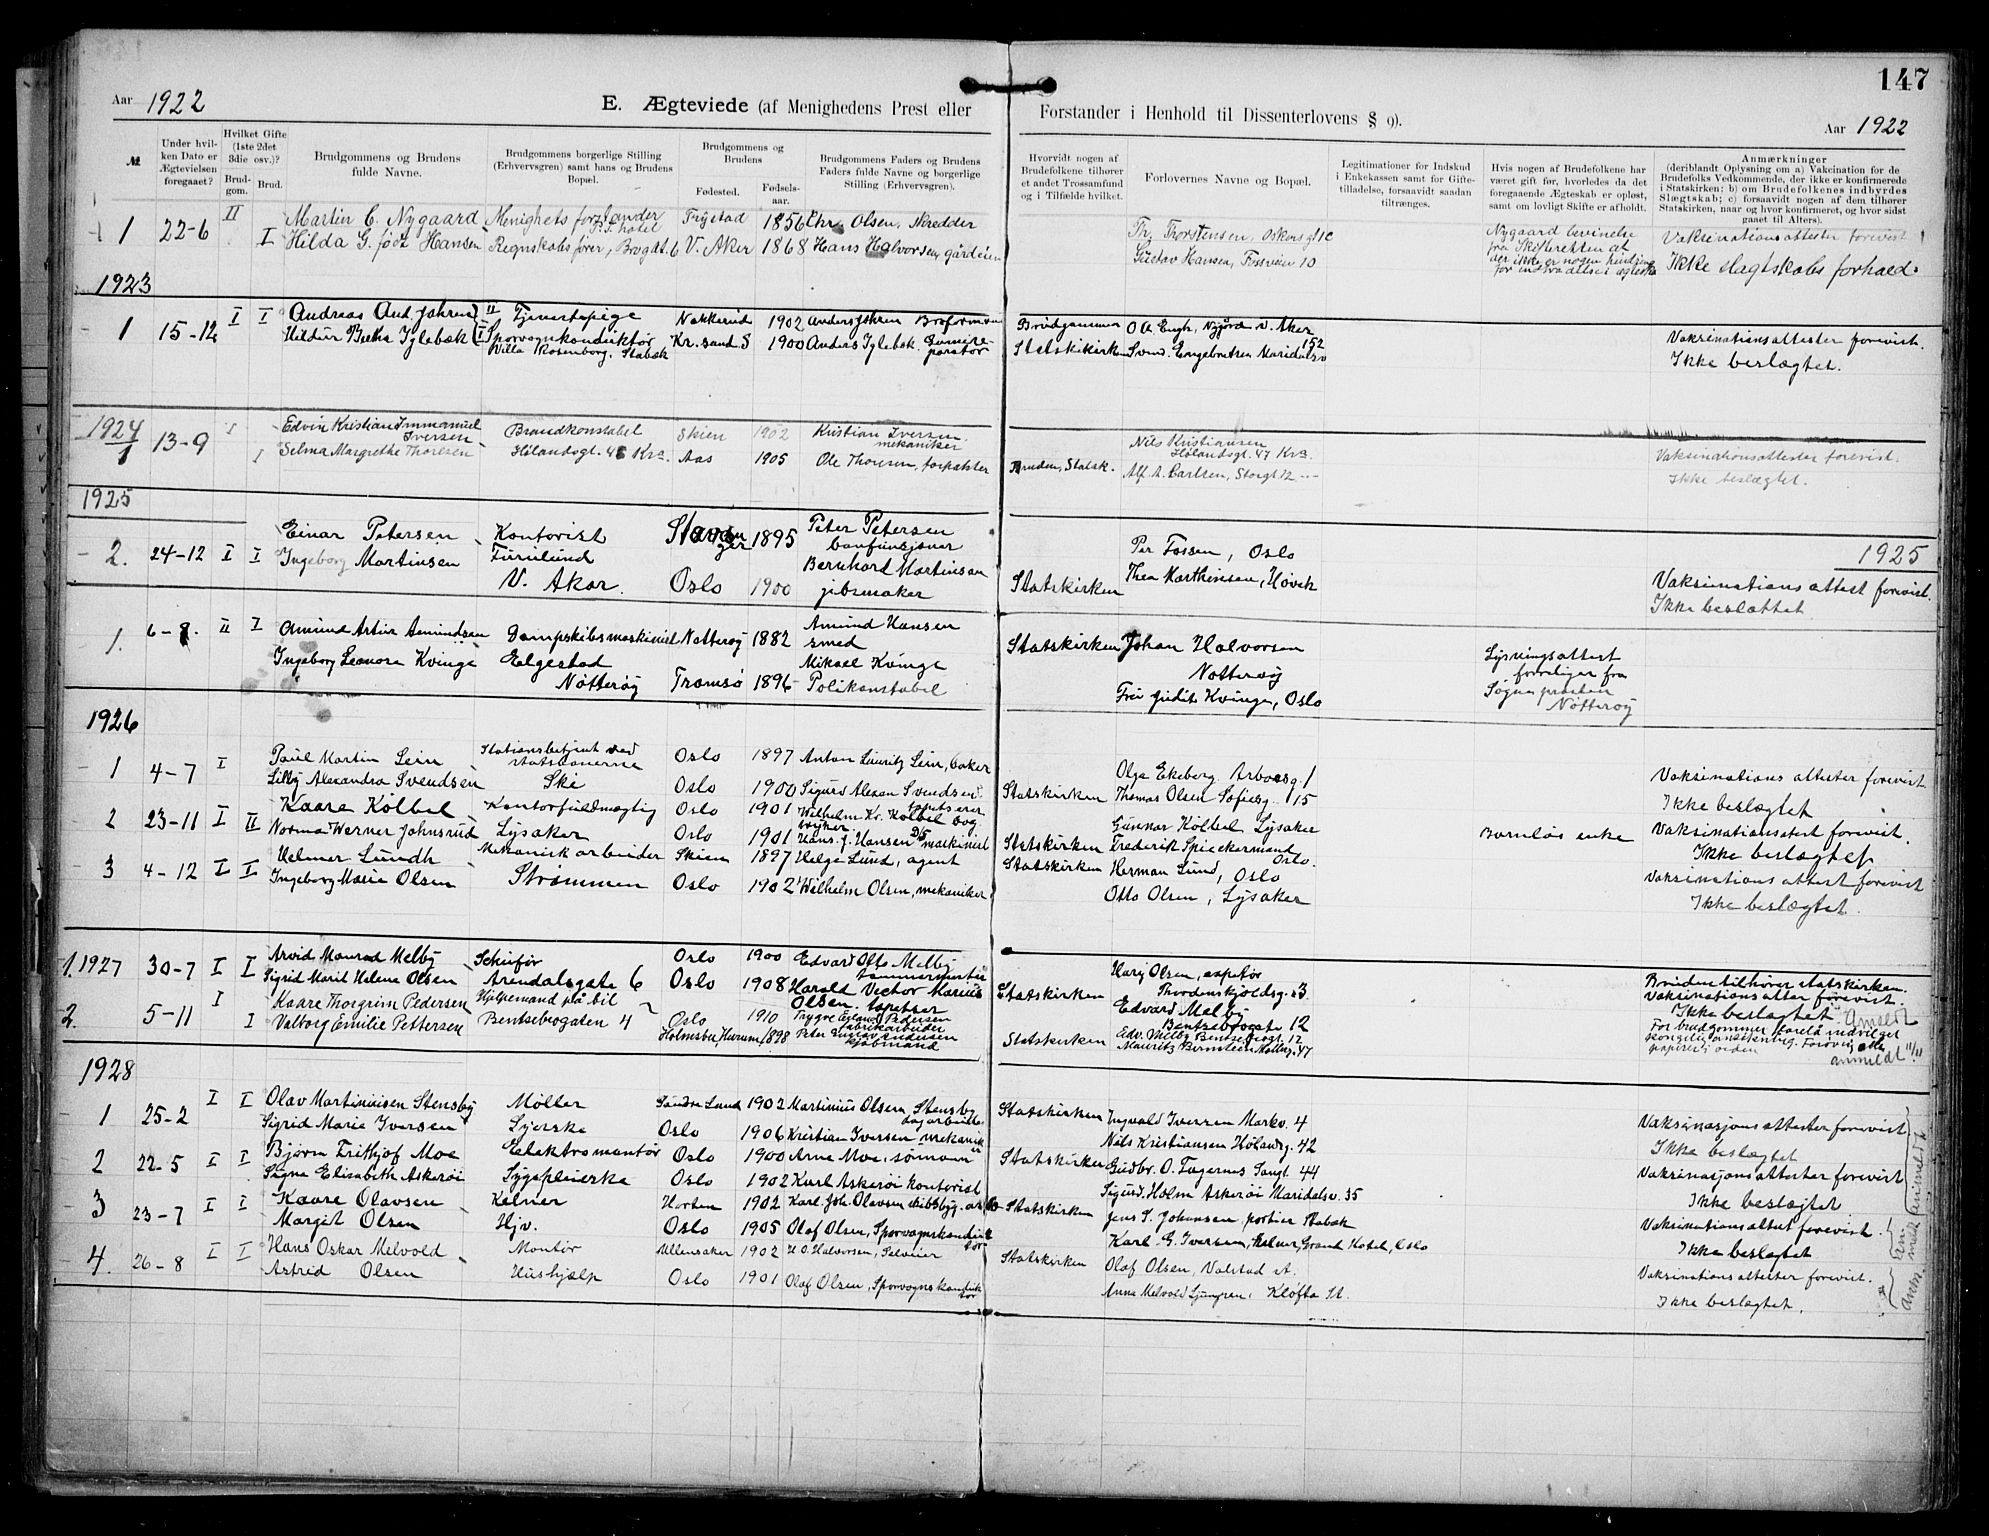 147
Aar 1922
E. Ægteviede (af Menighedens Prest eller
Forstander i Henhold til Dissenterlovens § 9).
Aar 1922
№
Under hvilken Dato er Ægtevielsen foregaaet?
Hvilket Gifte (1ste 2det 3die osv.)?
Brudgom.
Brud.
Brudgommens og Brudens fulde Navne.
Brudgommens borgerlige Stilling (Erhvervsgren) samt hans og Brudens Bopæl.
Brudgommens og Brudens
Fødested.
Fødselsaar.
Brudgommens Faders og Brudens Faders fulde Navne og borgerlige Stilling (Erhvervsgren).
Hvorvidt nogen af Brudefolkene tilhører et andet Trossamfund og i Tilfælde hvilket.
Forlovernes Navne og Bopæl.
Legitimationer for Indskud i Enkekassen samt for Giftetilladelse, forsaavidt saadan tiltrænges.
Hvis nogen af Brudefolkene har været gift før, hvorledes da det foregaaende Ægteskab er opløst, samt om lovligt Skifte er afholdt.
Anmærkninger
(deriblandt Oplysning om a) Vakcination for de Brudefolks Vedkommende, der ikke er konfirmerede i Statskirken; b) om Brudefolkenes indbyrdes Slægtskab; c) forsaavidt nogen af dem tilhører Statskirken, naar og hvor konfirmeret, og hvor sidst gaaet til Alters).
1 22-6 II Martin C. Nygaard Menighets forstander Trystad 1856 Chr. Olsen, Skredder Th. Thorstensen, Oskars gt 1c Vaksinationsattester forevist
I Hilda G. født Hansen Regnskabsfører, Brogt. 6 V. Aker 1868 Hans Halvorsen, gårdeier Gustav Hansen, Fossveien 10 Nygaard bevinelse fra Skifteretten at der ikke er nogen hindring for indtrædelse i ægteskap Ikke slagtskabs forhold
1923
1 15-12 I I Andreas And. Jahren II Tjenestepige Nakkerud 1902 Anders Jahren Broformann Brudgommen O A Engh, Nygård v. Aker Vaksinationsattester forevist.
Hildur Betha Iglebæk I Sporvognskonduktør Kr. sand S 1900 Anders Iglebæk Statskirken Svend. Engebretsen Maridalsv 152 Ikke beslægtet.
Villa Rosenborg. Stabæk
1924
1 13-9 I Edvin Kristian Immanuel Iversen Brandkonstabel Skien 1902 Kristian Iversen. mekaniker Nils Kristiansen Hølandsgt. 47 Kra Vaksinationsattester forevist.
I Selma Margrethe Thoresen Hølandsgt. 4 Kra. Aas 1905 Ole Thoresen, forpakter Bruden, Statsk. Alf A. Carlsen, Storgt 12 Ikke beslægtet.
1925
2. 24-12 I I Einar Petersen Kontorist Stavanger 1895 Peter Petersen Per Fossen, Oslo 1925
Ingeborg Martinsen Furulund V. Aker. Oslo 1900 Bernhard Martinsen gibsmaker Statskirken Thea Marthinsen, Høvik Vaksinations attest forevist.
Ikke beslættet
1. 6-8. II I Amund Artur Amundsen Dampskibsmaskinist Nøtterøy 1882 Amund Hansen smed Statskirken Johan Halvorsen Nøtterøy Lysningsattest foreligger fra Sogneprosten Nøtterøy
Ingeborg Leonora Kvinge Elgestad Nøtterøy Tromsø 1896 Mikael Kvinge Polikonstabel Frk Judit Kvinge, Oslo
1926
1 4-7 I Paul Martin Lein Stationsbetjent ved statsbanerne Oslo 1897 Anton Lauritz Lein, baker Olga Ekeberg Arboesg. 1 Vaksinations attester forevist.
Lilly Alexandra Svendsen Ski Oslo 1900 Sigurd Alexan Svendsen Statskirken Thomas Olsen Sofiesg. 15 Ikke beslægtet
2 23-11 I II Kaare Kölbel Kontorfuldmægtig Oslo 1901 Wilhelm Kr. Kölbel Gunnar Kölbel Lysaker Barnløs enke Vaksinationsattest forevist.
Norma Werner Johnsrud Lysaker Oslo 1901 Hans. J. Hansen maskinist Statskirken Frederik Spieckermand Oslo. Ikke beslægtet
3 4-12 I I Helmer Lundh Mekanisk arbeider Skien 1897 Helge Lund, agent Statskirken Herman Lund, Oslo Vaksinations attest forevist
Ingeborg Marie Olsen Strømmen Oslo 1902 Wilhelm Olsen, mekaniker Otto Olsen, Lysaker Ikke beslægtet.
1. 1927 30-7 I I Arvid Monrad Melby Schufør Oslo 1900 Edvard Otto Melby tømmermester Harry Olsen, Thordenskjoldsg. 3 Bruden tilhører statskirken.
Sigrid Marit Helene Olsen Arendalsgate 6 Oslo 1908 Harald Vector Marius Olsen. tapetser Statskirken Edvard Melby Bentsebrogate 12 Vaksinations attest forevist. Ikke beslægtet
2. 5-11 I Kaare Thorgrim Pedersen Hjelpemand på bil Oslo 1910 Trygve Pedersen fabrikarbeider Edv. Melby Bentsebrogt. 12 For brudgommen
I Valborg Emilie Pettersen Bentsebrogaten 4 Holmsbu, Hurum 1898 Peter Gustav Andersen Statskirken Mauritz Bernsteen Møllerg. 47 papirer i orden anmeldt 11/11
1928
1 25-2 I I Olav Martiniusen Stensby Møller Søndre Land 1902 Martinius Olsen Stensby dagarbeider Statskirken Ingvald Iversen Markv. 4 Vaksinasjons attester forevist.
Sigrid Marie Iversen Syerske Oslo 1906 Kristian Iversen mekaniker Nils Kristiansen Hølandsg. 42 Ikke beslægtet
2 22-5 I I Bjørn Frithjof Moe Elektromontør Oslo 1900 Arne Moe, sjømann Statskirken Gudbr. O. Fagernes Sangt 44 Vaksinasjons attester forevist
Signe Elisabeth Askerøi Sygepleierske Oslo 1902 Karl Askerøi kontorist Sigurd. Holm Askerøi Maridalsv. 35 Ikke beslægtet
3 23-7 I I Kaare Olavsen Kelner Horten 1902 Karl. Joh. Olavsen skibsbyg. arb Statskirken Jens S. Johansen, portier Stabæk Vaksinationsattest forevist.
Margit Olsen Hjv. Oslo 1905 Olaf Olsen, Sporvognskonduktør Karl. G. Iversen, Kelner, Grand Hotel, Oslo Ikke beslægtet
4. 26-8 I I Hans Oskar Melvold Montør Ullensaker 1902 H. O. Halvorsen, Selveier Statskirken Olaf Olsen, Valstad st. Vaksinationsattester forevist.
Astrid Olsen Hushjælp Oslo 1901 Olaf Olsen, Sporvognskonduktør Anna Melvold Ljungren, Kløfta St. Ikke beslægtet.